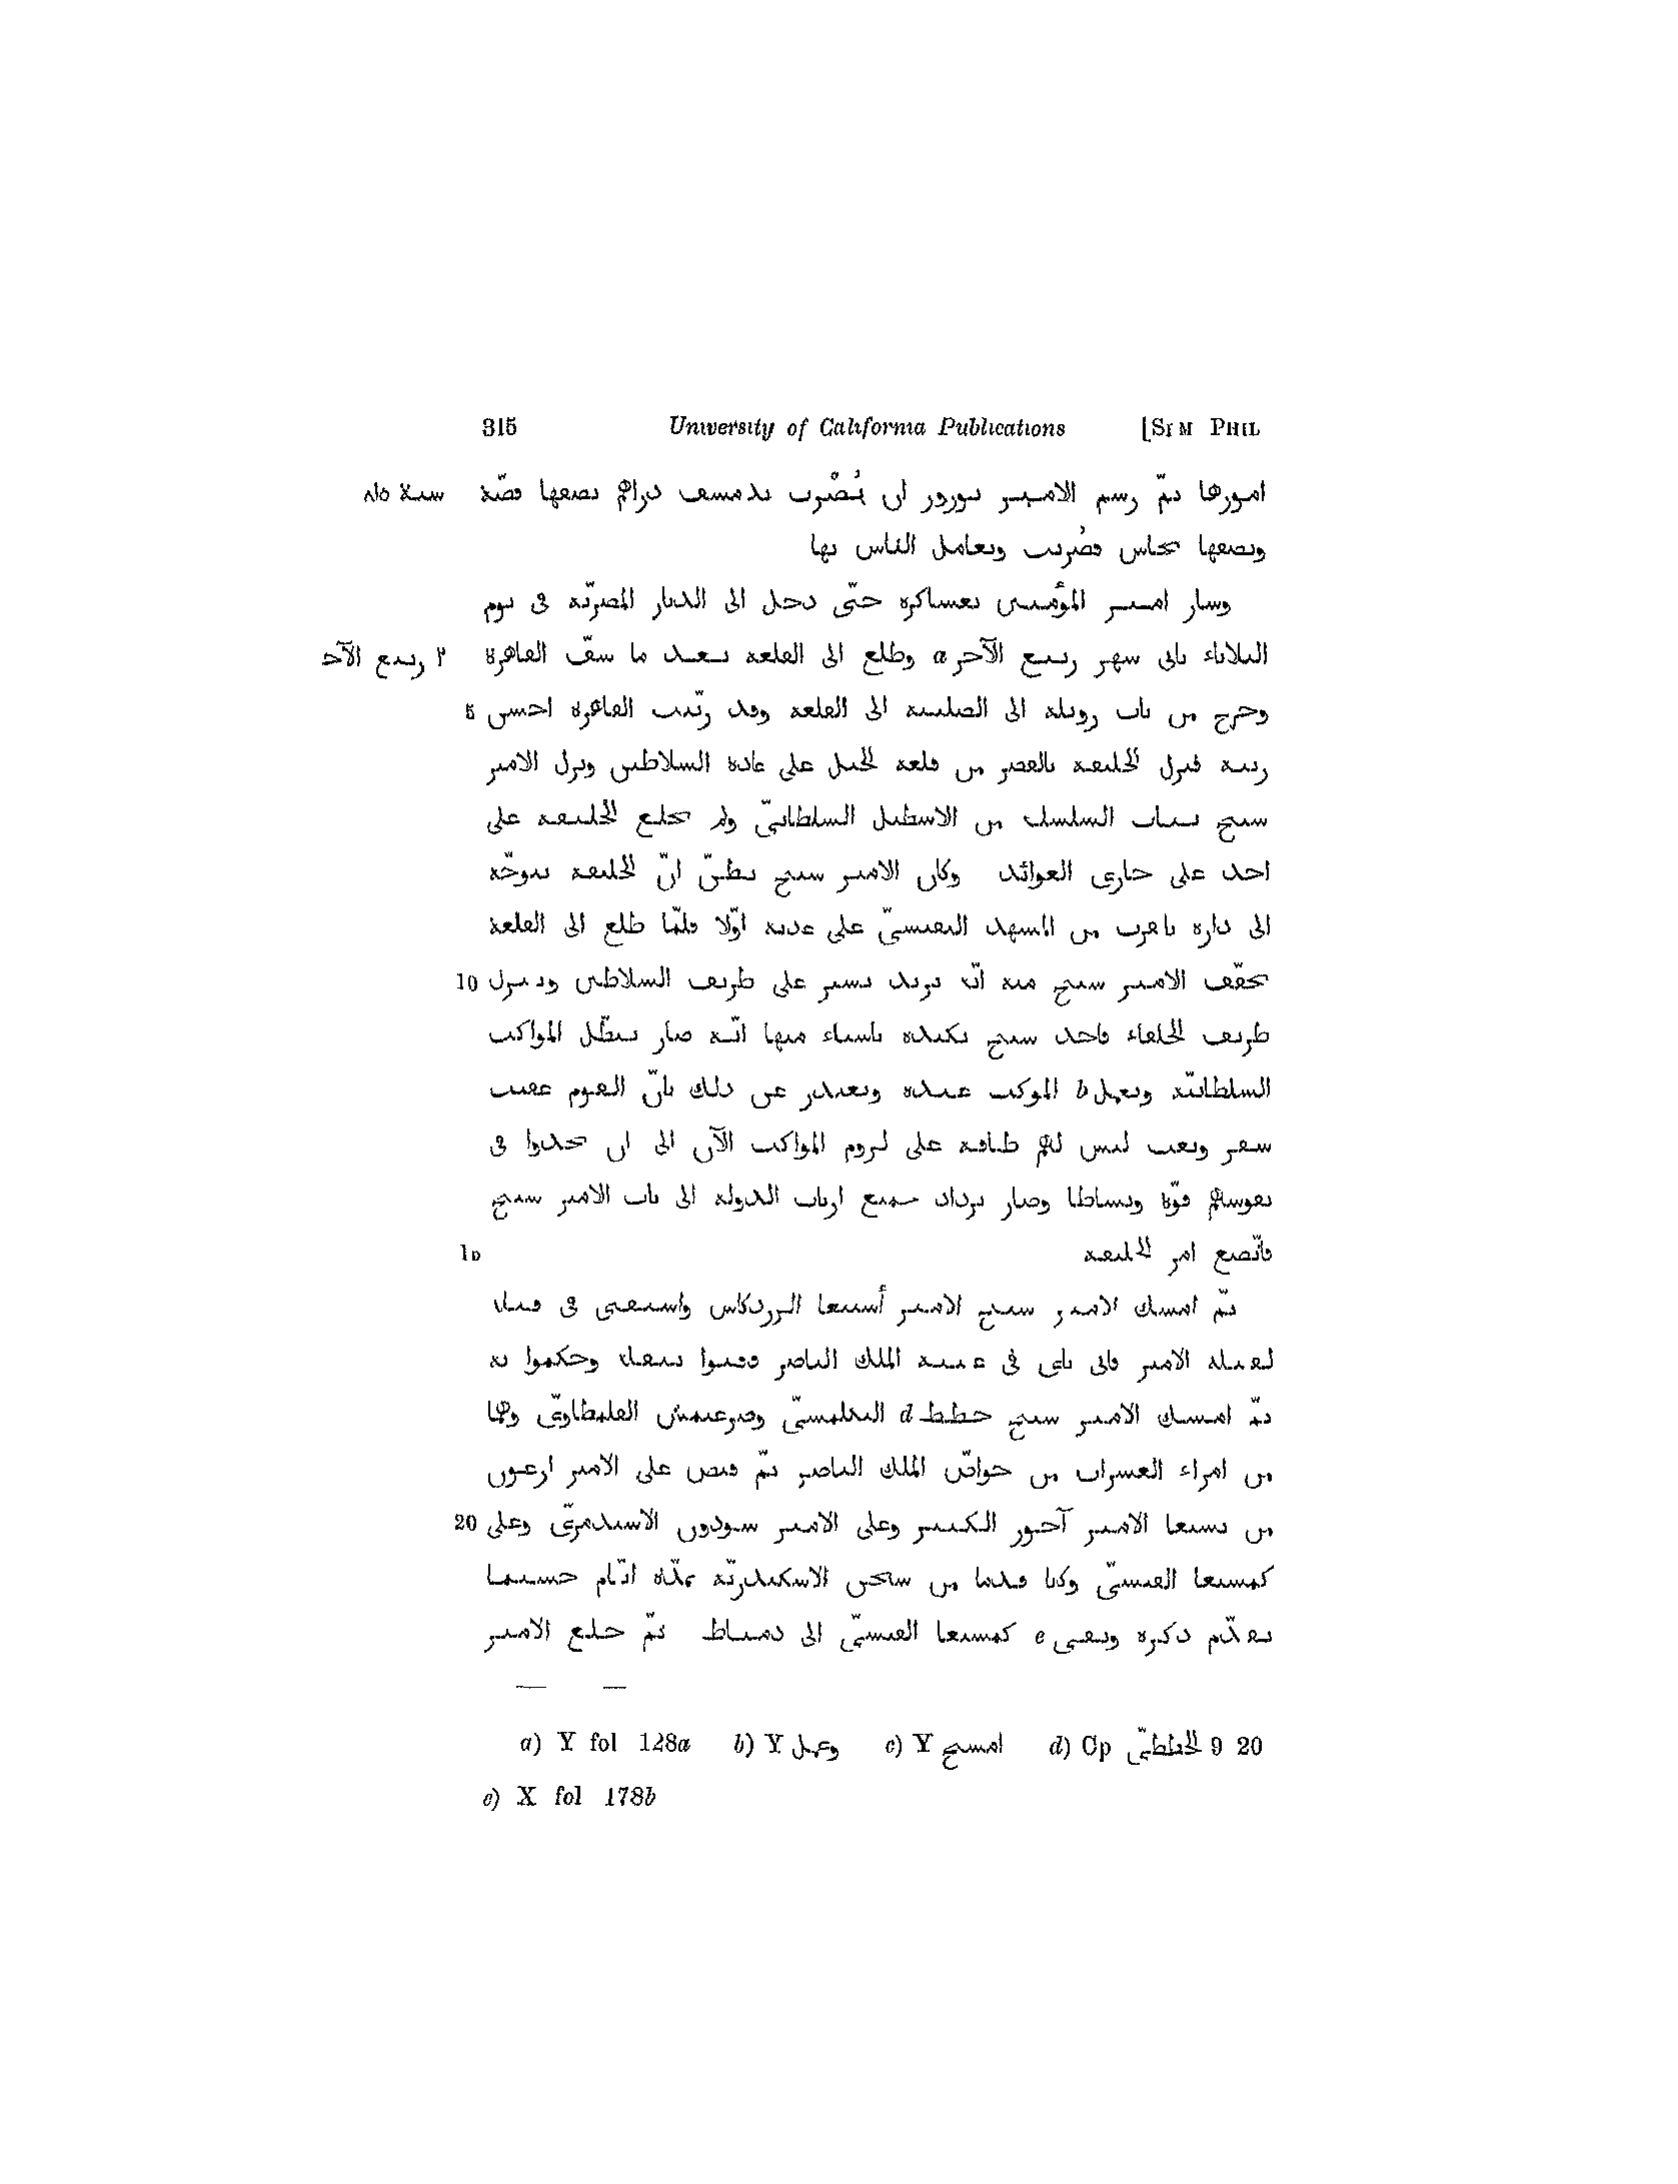 315 University of California Publications [SEM PHIL
امورها ثمّ رسم الامير نوروز ان يُضْرَب بدمشق دراهم نصفها فضّة سنة ٨١٥
ونصفها نحاس فضُربت وتعامل الناس بها
وسار امير المؤمنين بعساكره حتّى دخل الى الديار المصريّة فى يوم
الثلاثاء ثانى شهر ربيع الآخر a وطلع الى القلعة بعد ما شقّ القاهرة ٢ ربيع الآخ
وخرج من باب زويلة الى الصليبة الى القلعة وقد زيّنت القاهرة احسن 5
زينة فنزل الخليفة بالقصر من قلعة الجبل على عادة السلاطين ونزل الامير
شيخ بباب السلسلة من الاسطبل السلطانىّ ولم يخلع الخليفة على
احد على جارى العوائد وكان الامير شيخ يظنّ انّ الخليفة يتوجّه
الى داره بالقرب من المشهد النفيسىّ على عادته اوّلا فلمّا طلع الى القلعة
تحقّق الامير شيخ منه انّه يريد يسير على طريق السلاطين ويترك 10
طريق الخلفاء فاخذ شيخ يكيده باشياء منها انّه صار يبطّل المواكب
السلطانيّة ويعمل b الموكب عنده ويعتذر عن ذلك بانّ القوم عقيب
سفر وتعب ليس لهم طاقة على لزوم المواكب الآن الى ان يجدوا فى
نفوسهم قوّة ونشاطا وصار ترداد جميع ارباب الدولة الى باب الامير شيخ
فاتّضع امر الخليفة 15
ثمّ امسك الامير شيخ الامير أسنبغا الزردكاش واستفتى فى قتله
لقتله الامير قانى باى فى غيبة الملك الناصر فافتوا بقتله وحكموا به
ثمّ امسك الامير شيخ خطط d البكلمشىّ وصرغتمش القلمطاوىّ وهما
من امراء العشرات من خواصّ الملك الناصر ثمّ قبض على الامير ارغون
من بشبغا الامير آخور الكبير وعلى الامير سودون الاسندمرىّ وعلى 20
كمشبغا العيسىّ وكانا قدما من سجن الاسكندريّة بمدّة ايّام حسبما
تقدّم ذكره ونفى e كمشبغا العيسىّ الى دمياط ثمّ خلع الامير
a) Y fol 128a b) Y وعمل c) Y امشيخ d) Cp الخططىّ 9 20
e) X fol 178b